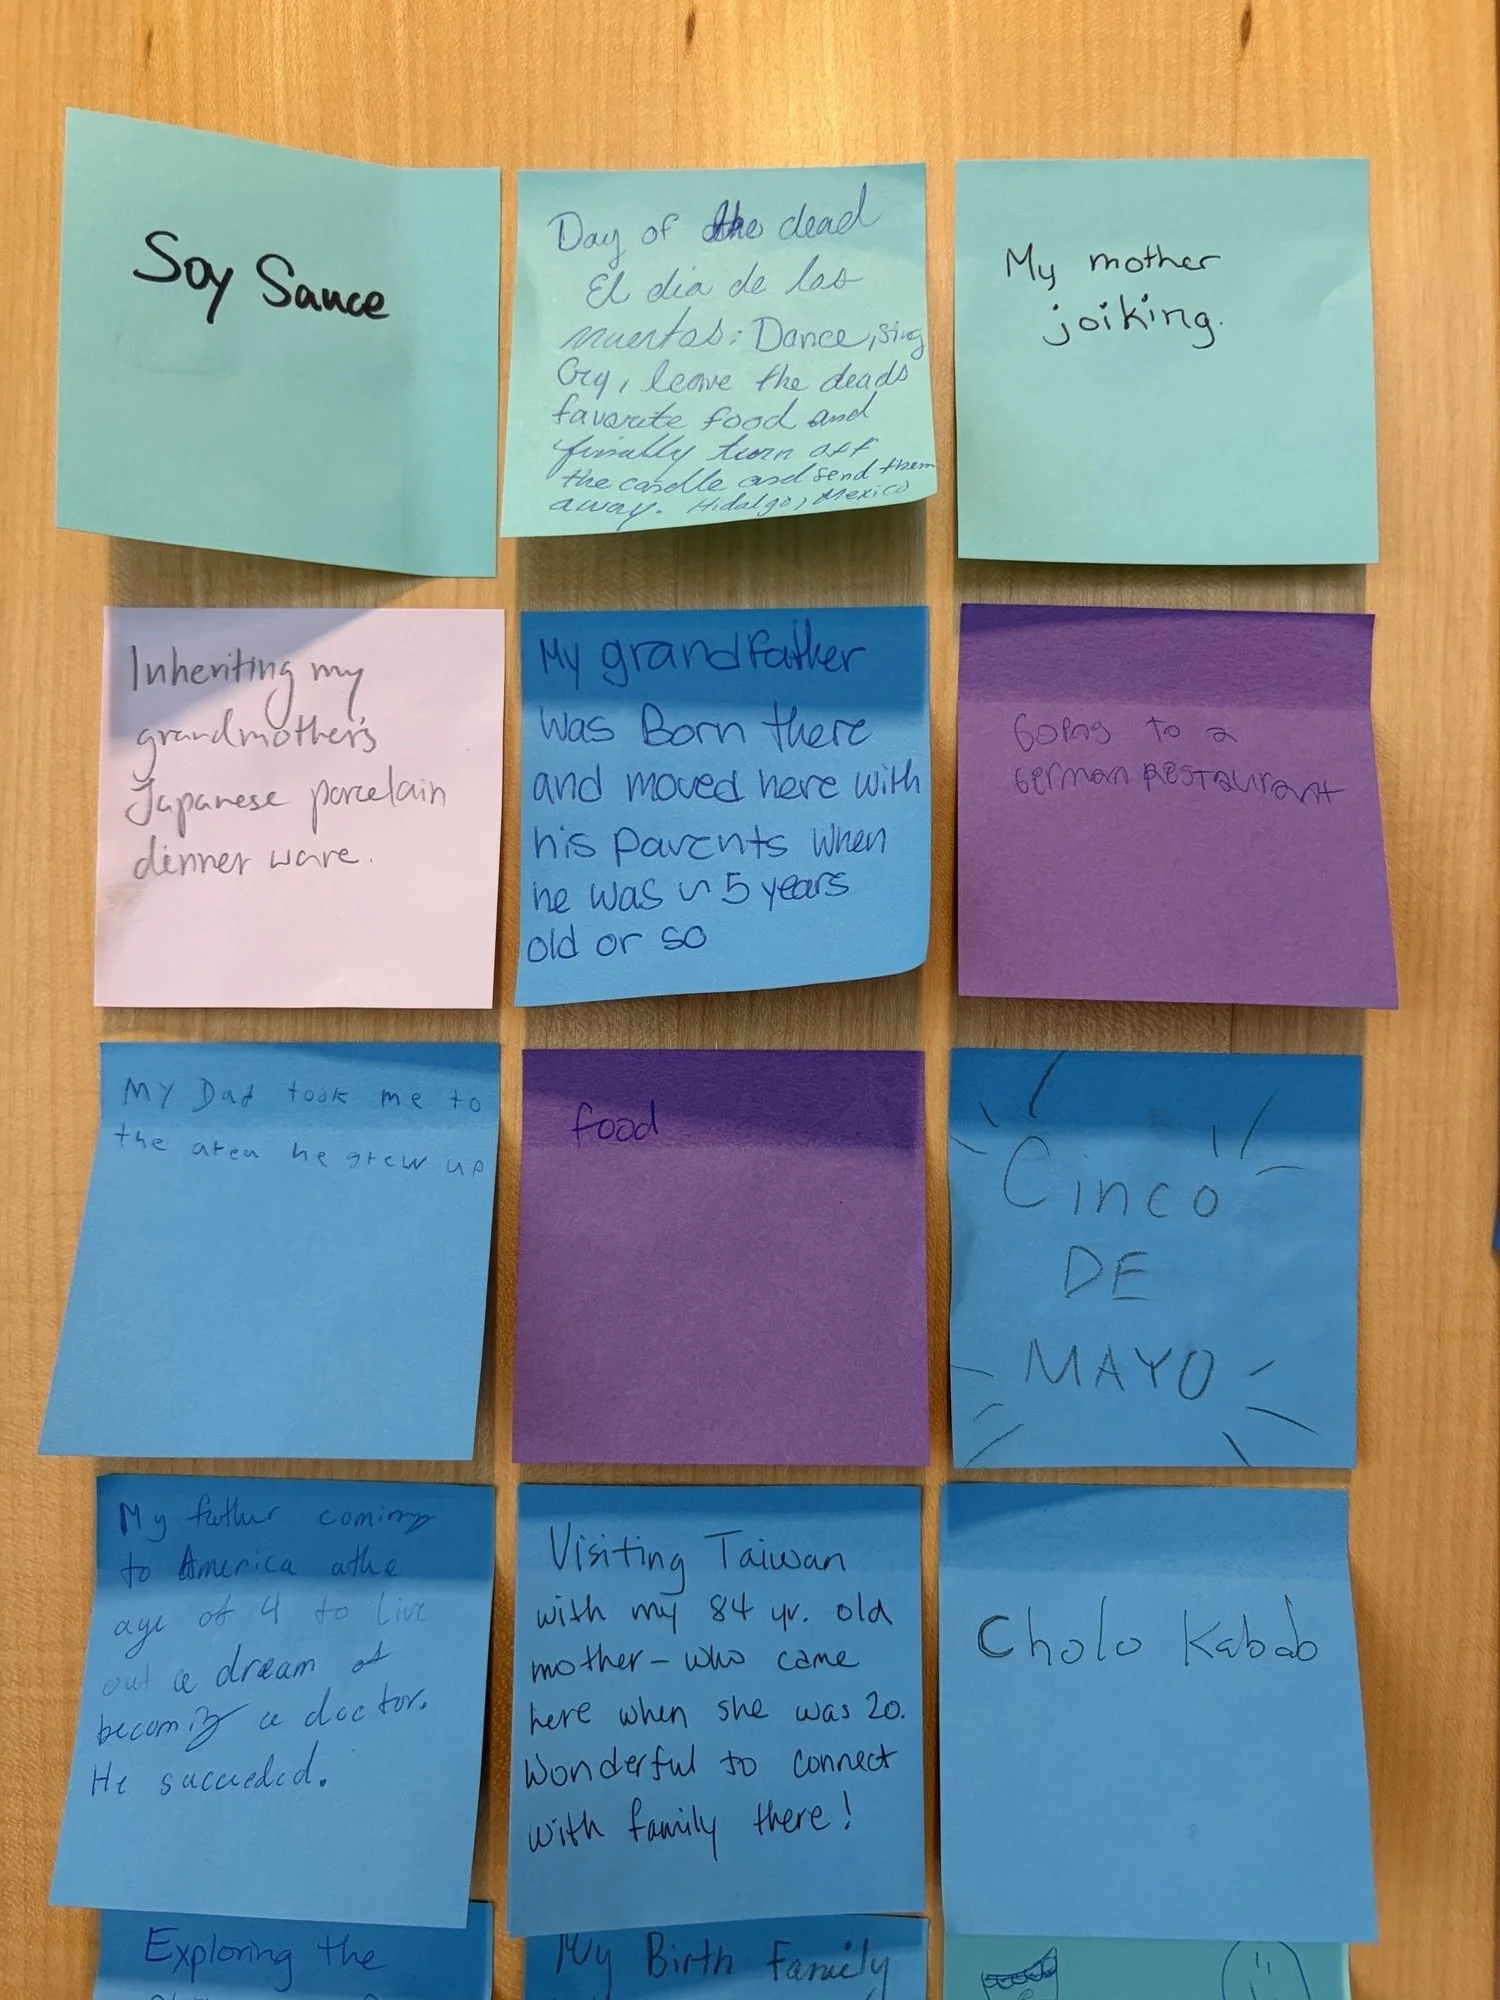 Soy Sauce
Day of the dead
El dia de los
muertos: Dance, sing
Cry, leave the deads
favorite food and
finally turn off
the candle and send them
away. Hidalgo, Mexico
My mother
joiking.
Inheriting my
grandmother's
Japanese porcelain
dinner ware.
My grandfather
was Born there
and moved here with
his parents when
he was ~ 5 years
old or so
Going to a
German Restaurant
My Dad took me to
the area he grew up
food
Cinco
DE
MAYO
My father coming
to America at the
age of 4 to live
out a dream of
becoming a doctor.
He succeeded.
Visiting Taiwan
with my 84 yr. old
mother - who came
here when she was 20.
Wonderful to connect
with family there!
Cholo Kabab
Exploring the
My Birth Family